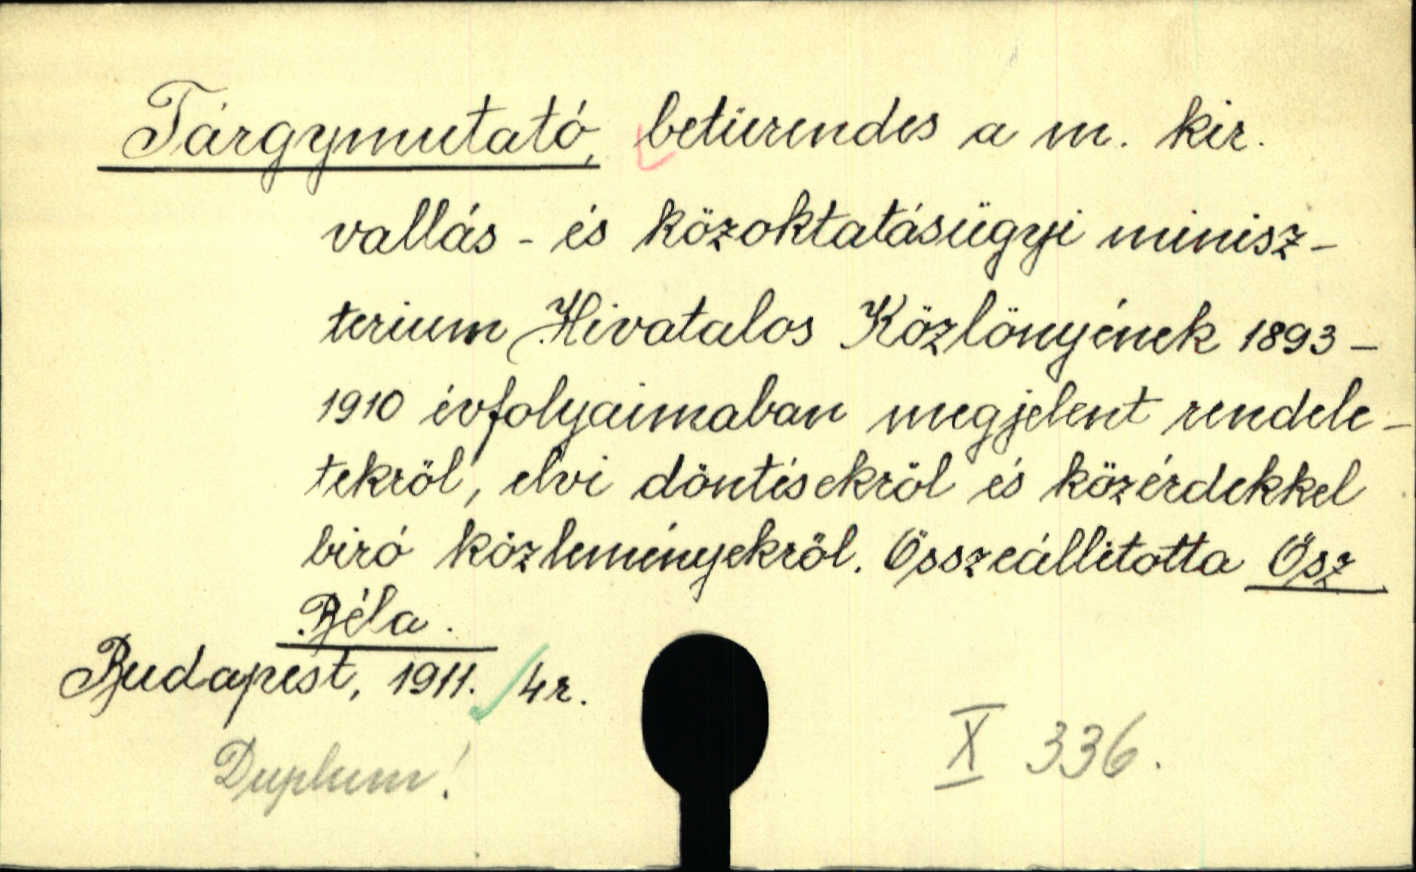 Tárgymutató, betürendes a m. kir.
vallás- és közoktatásügyi minisz-
terium Hivatalos Közlönyének 1893-
1910 évfolyaimaban megjelent rendele-
tekröl, elvi döntésekröl és közérdekkel
biró közleményekröl. Összeállitotta Ősz
Béla.
Budapest, 1911. 4r.
Duplum!
X 336.